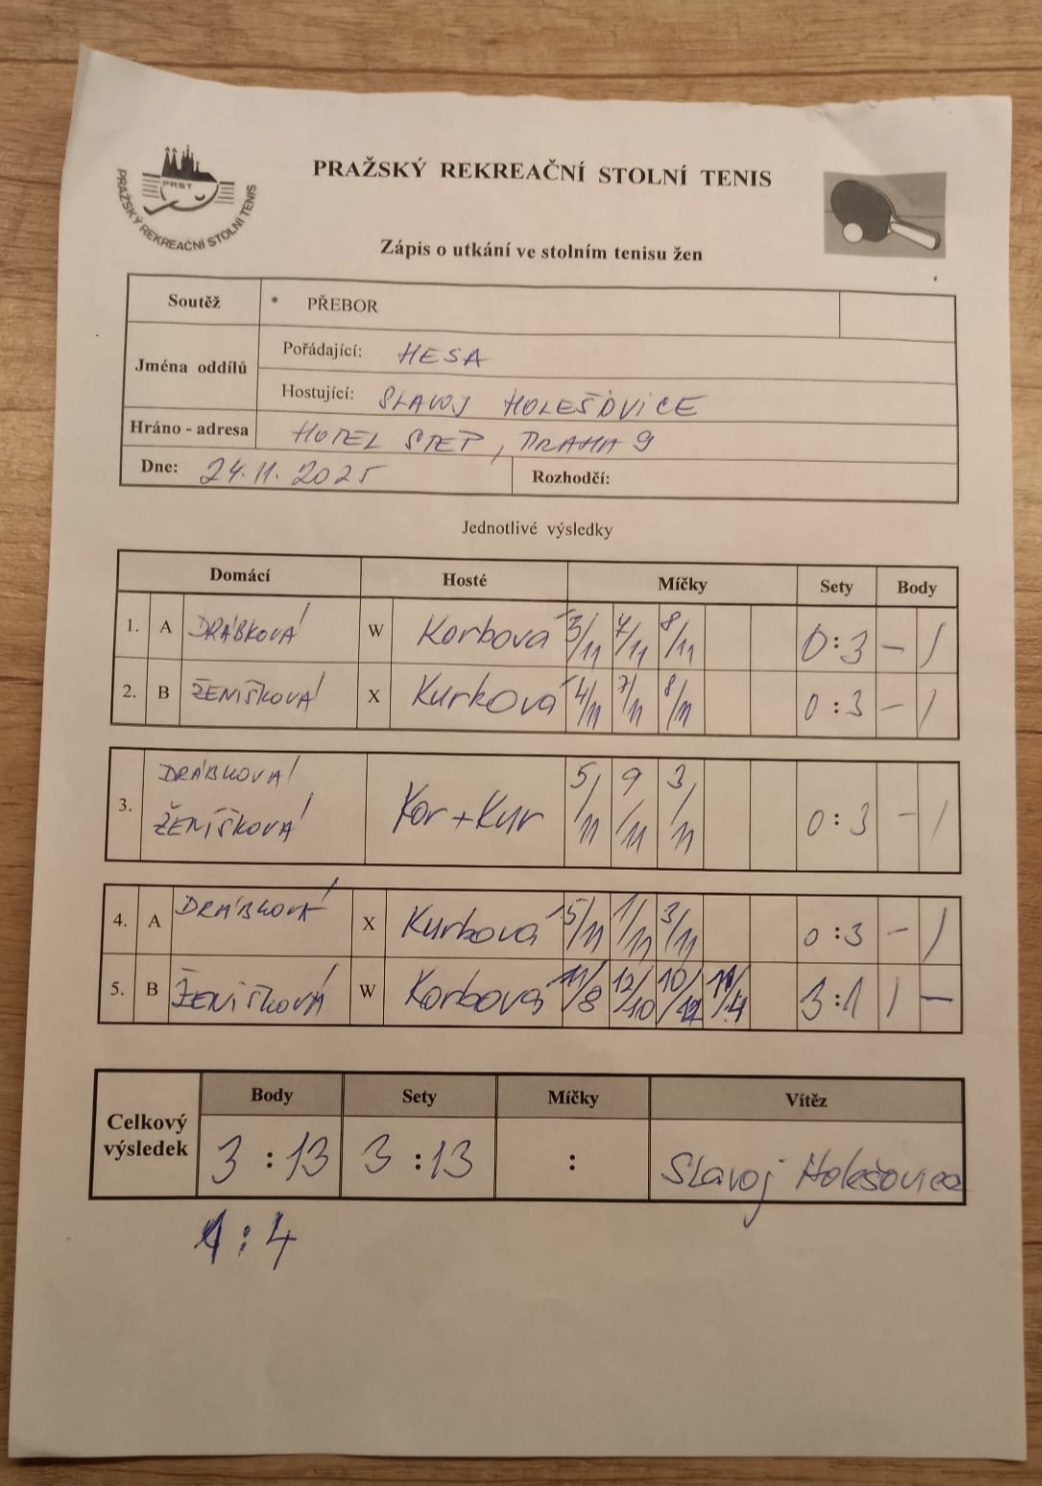 PRST
PRAŽSKÝ REKREAČNÍ STOLNÍ TENIS
PRAŽSKÝ REKREAČNÍ STOLNÍ TENIS
Zápis o utkání ve stolním tenisu žen
Soutěž * PŘEBOR
Jména oddílů
Pořádající: HESA
Hostující: SLAVOJ HOLEŠOVICE
Hráno - adresa HOTEL STEP, PRAHA 9
Dne: 24.11.2025 Rozhodčí:
Jednotlivé výsledky
Domácí Hosté Míčky Sety Body
1. A DRÁBKOVÁ W Korbová 3/11 7/11 8/11 0:3 - 1
2. B ŽENÍŠKOVÁ X Kurková 4/11 7/11 8/11 0:3 - 1
DRÁBKOVÁ
3. ŽENÍŠKOVÁ Kor+Kur 5/11 9/11 3/11 0:3 - 1
4. A DRÁBKOVÁ X Kurbová 5/11 1/11 3/11 0:3 - 1
5. B ŽENÍŠKOVÁ W Korbová 11/8 12/10 10/12 11/4 3:1 1 -
Celkový výsledek
Body Sety Míčky Vítěz
3:13 3:13 : Slavoj Holešovice
1:4